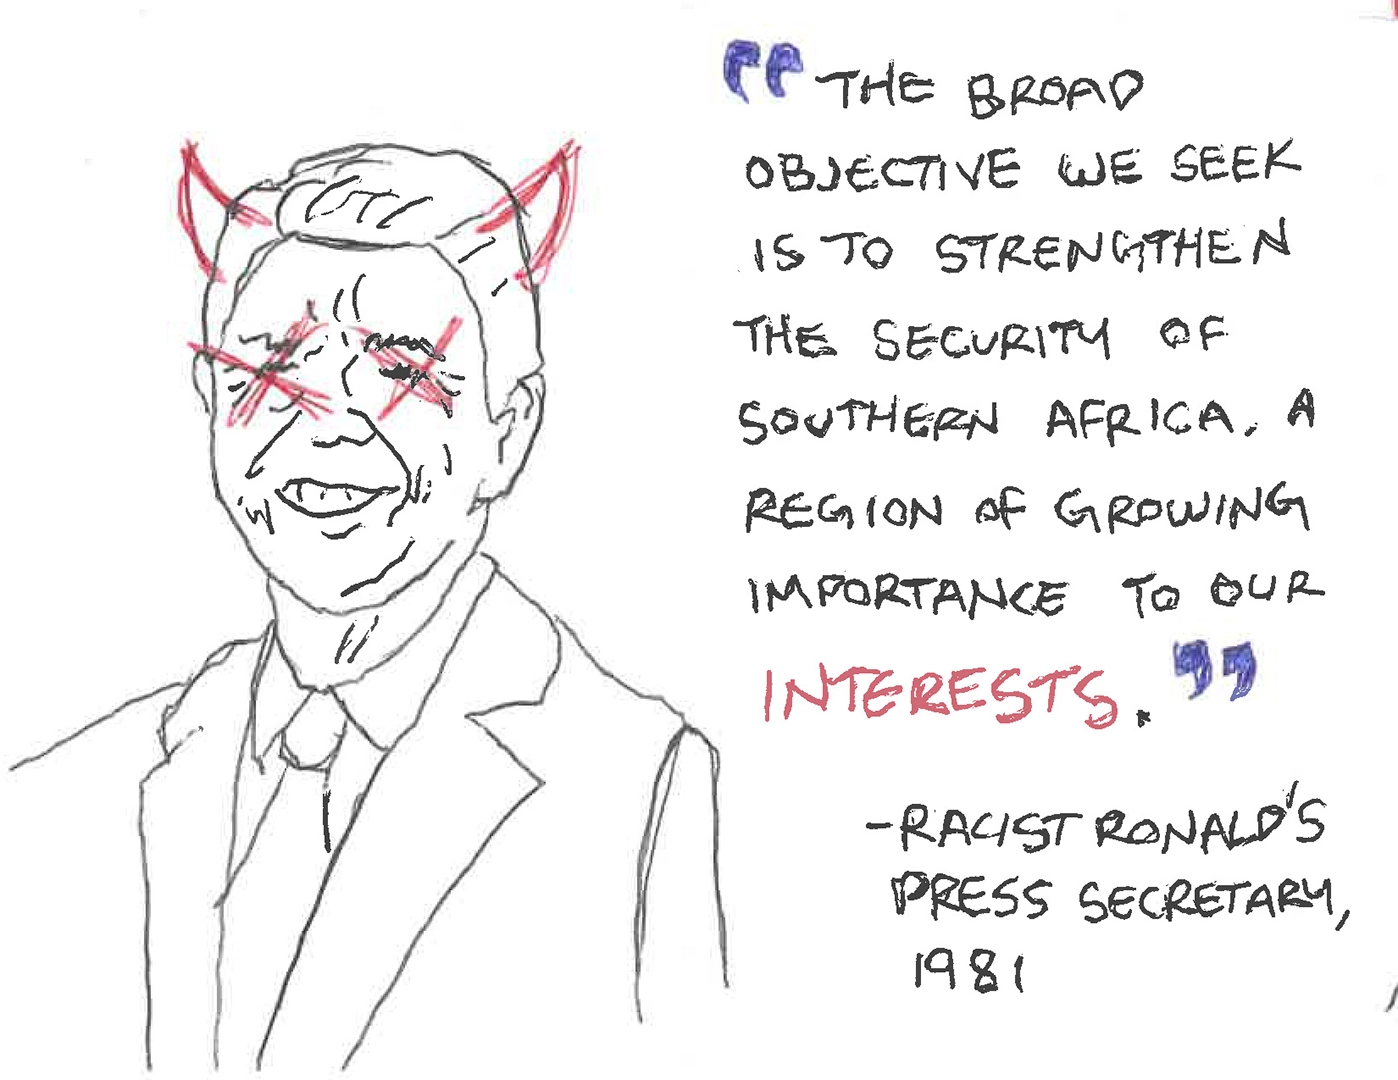 "THE BROAD
OBJECTIVE WE SEEK
IS TO STRENGTHEN
THE SECURITY OF
SOUTHERN AFRICA. A
REGION OF GROWING
IMPORTANCE TO OUR
INTERESTS."
-RACIST RONALD'S
PRESS SECRETARY,
1981